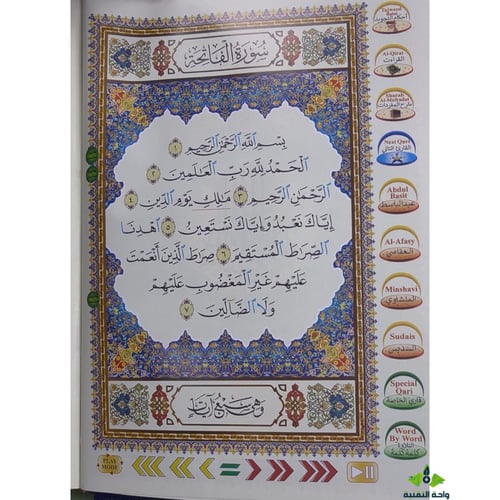 سُورَةُ الْفَاتِحَةِ
بِسْمِ اللَّهِ الرَّحْمَٰنِ الرَّحِيمِ ١
الْحَمْدُ لِلَّهِ رَبِّ الْعَالَمِينَ ٢
الرَّحْمَٰنِ الرَّحِيمِ ٣ مَالِكِ يَوْمِ الدِّينِ ٤
إِيَّاكَ نَعْبُدُ وَإِيَّاكَ نَسْتَعِينُ ٥ اهْدِنَا
الصِّرَاطَ الْمُسْتَقِيمَ ٦ صِرَاطَ الَّذِينَ أَنْعَمْتَ
عَلَيْهِمْ غَيْرِ الْمَغْضُوبِ عَلَيْهِمْ
وَلَا الضَّالِّينَ ٧
وَهِيَ سَبْعُ آيَاتٍ
Tajweed
Rules
أحكام التجويد
Al-Qirat
القراءات
Sharah
Al-Mufradat
Next Qari
القارئ التالي
Abdul
Basit
عبدالباسط
Al-Afasy
العفاسي
Minshavi
المنشاوي
Sudais
السديس
Special
Qari
قارئ الخاصة
Word
By Word
التلاوة
كلمة كلمة
PLAY
MODE
واحة التقنية